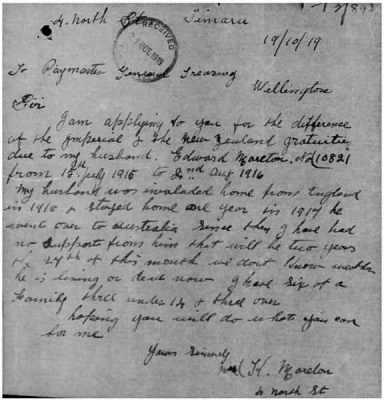 4 North St Timaru
RECEIVED
21 OCT 1919
19/10/19
To Paymaster General Treasury
Wellington
Sir
I am applying to you for the difference
of the Imperial & the New Zealand gratuities
due to my husband. Edward Moreton. No 10821
from 13th July 1915 to 2nd Aug 1916
My husband was invalided home from England
in 1916 & stayed home one year in 1917 he
went over to Australia since then I have had
no support from him that will be two years
27th of this month we dont know weather
he is living or dead now I have six of a
Family three under 14 & three over
hoping you will do what you can
for me
Yours Sincerely
K. Moreton
4 North St